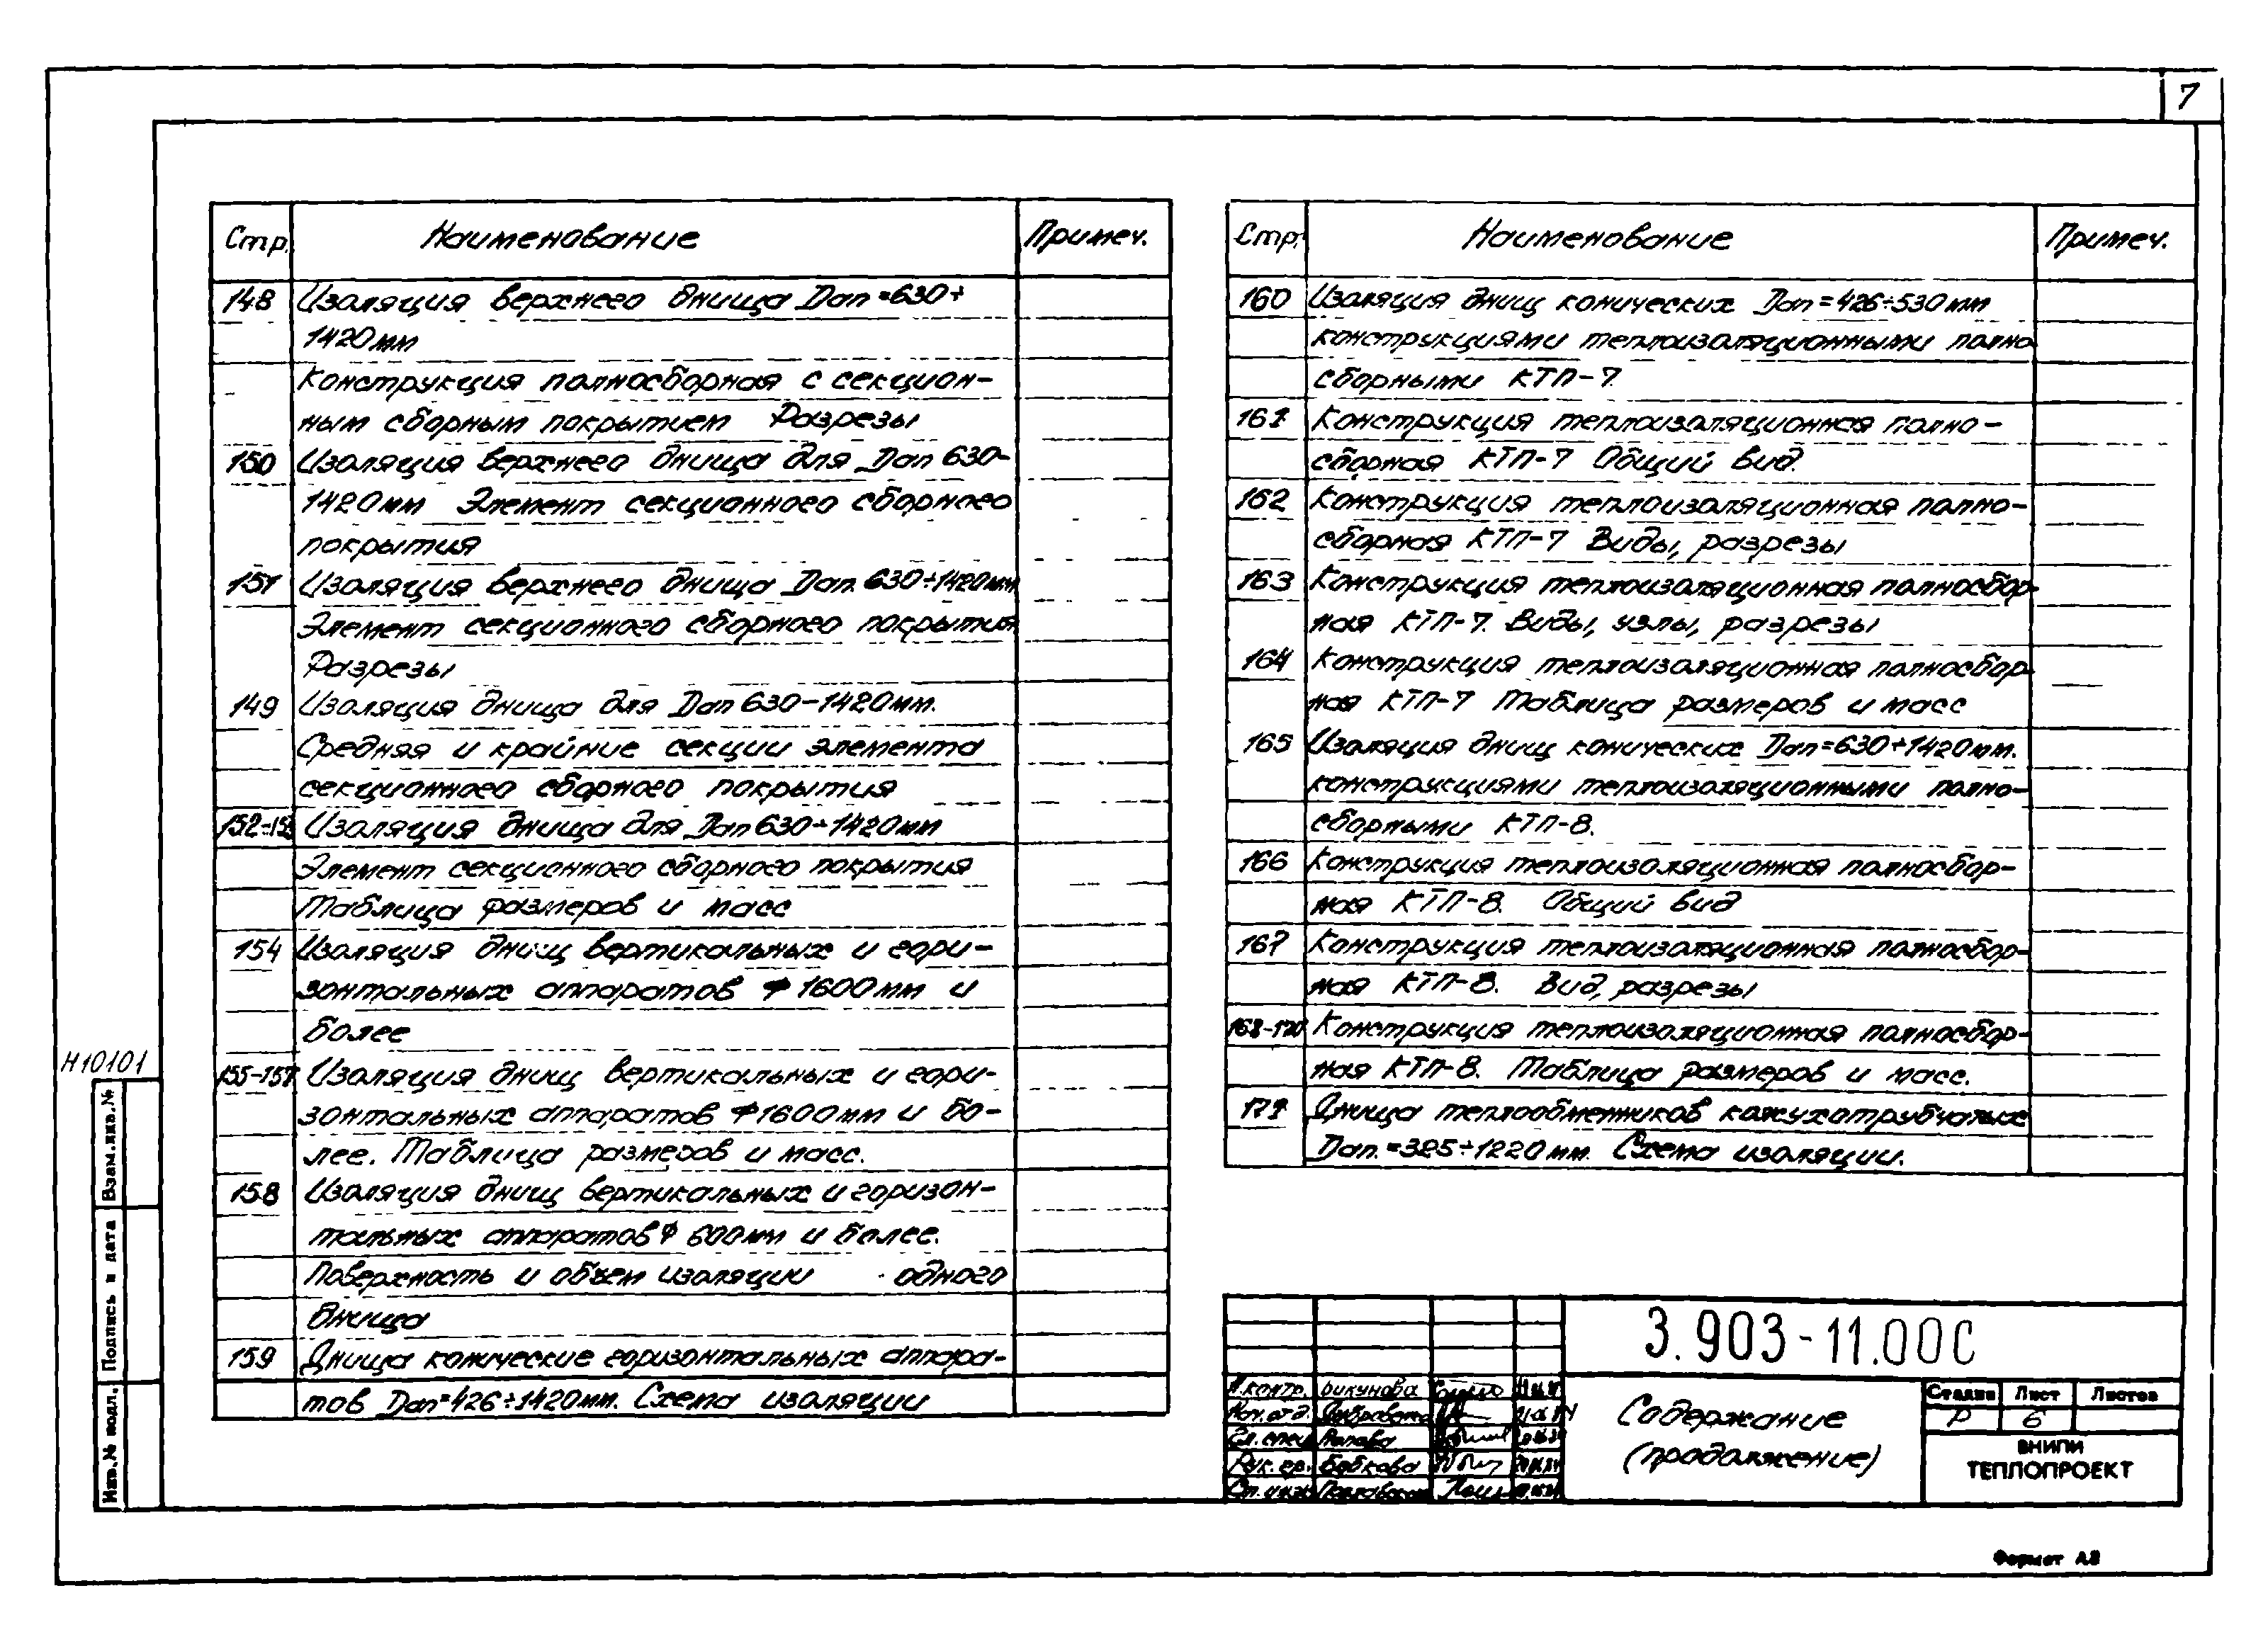 7
Стр. Наименование Примеч.
148 Изоляция верхнего днища Dап=630÷
1420мм
Конструкция полносборная с секцион-
ным сборным покрытием Разрезы
150 Изоляция верхнего днища для Dап 630-
1420мм Элемент секционного сборного
покрытия
151 Изоляция верхнего днища Dап. 630÷1420мм
Элемент секционного сборного покрытия
Разрезы
149 Изоляция днища для Dап 630-1420мм.
Средняя и крайние секции элемента
секционного сборного покрытия
Изоляция днища для Dап 630÷1420мм
Элемент секционного сборного покрытия
Таблица размеров и масс
154 Изоляция днищ вертикальных и гори-
зонтальных аппаратов ф 1600мм и
более
155-157 Изоляция днищ вертикальных и гори-
зонтальных аппаратов ф1600мм и бо-
лее. Таблица размеров и масс.
158 Изоляция днищ вертикальных и горизон-
тальных аппаратов ф 600мм и более.
Поверхность и объем изоляции одного
днища
159 Днища конические горизонтальных аппара-
тов Dап=426÷1420мм. Схема изоляции
Стр. Наименование Примеч.
160 Изоляция днищ конических Dап=426÷530мм
конструкциями теплоизоляционными полно
сборными КТП-7.
161 Конструкция теплоизоляционная полно-
сборная КТП-7 Общий вид.
162 Конструкция теплоизоляционная полно-
сборная КТП-7 Виды, разрезы
163 Конструкция теплоизоляционная полносбор-
ная КТП-7. Виды, узлы, разрезы
164 Конструкция теплоизоляционная полносбор-
ная КТП-7 Таблица размеров и масс
165 Изоляция днищ конических Dап=630÷1420мм.
конструкциями теплоизоляционными полно-
сборными КТП-8.
166 Конструкция теплоизоляционная полносбор-
ная КТП-8. Общий вид
167 Конструкция теплоизоляционная полносбор-
ная КТП-8. Вид, разрезы
168-170 Конструкция теплоизоляционная полносбор-
ная КТП-8. Таблица размеров и масс.
171 Днища теплообменников кожухотрубчатых
Dап.=325÷1220мм. Схема изоляции.
Н10101
Взам.инв.№
Подпись и дата
Инв.№ подл.
3.903-11.00С
Н.контр. Бикунова
Нач.отд.
Гл.спец Попова
Рук.гр. Бобкова
Ст.инж
Содержание
(продолжение)
Стадия Лист Листов
Р 6
ВНИПИ
ТЕПЛОПРОЕКТ
Формат А3